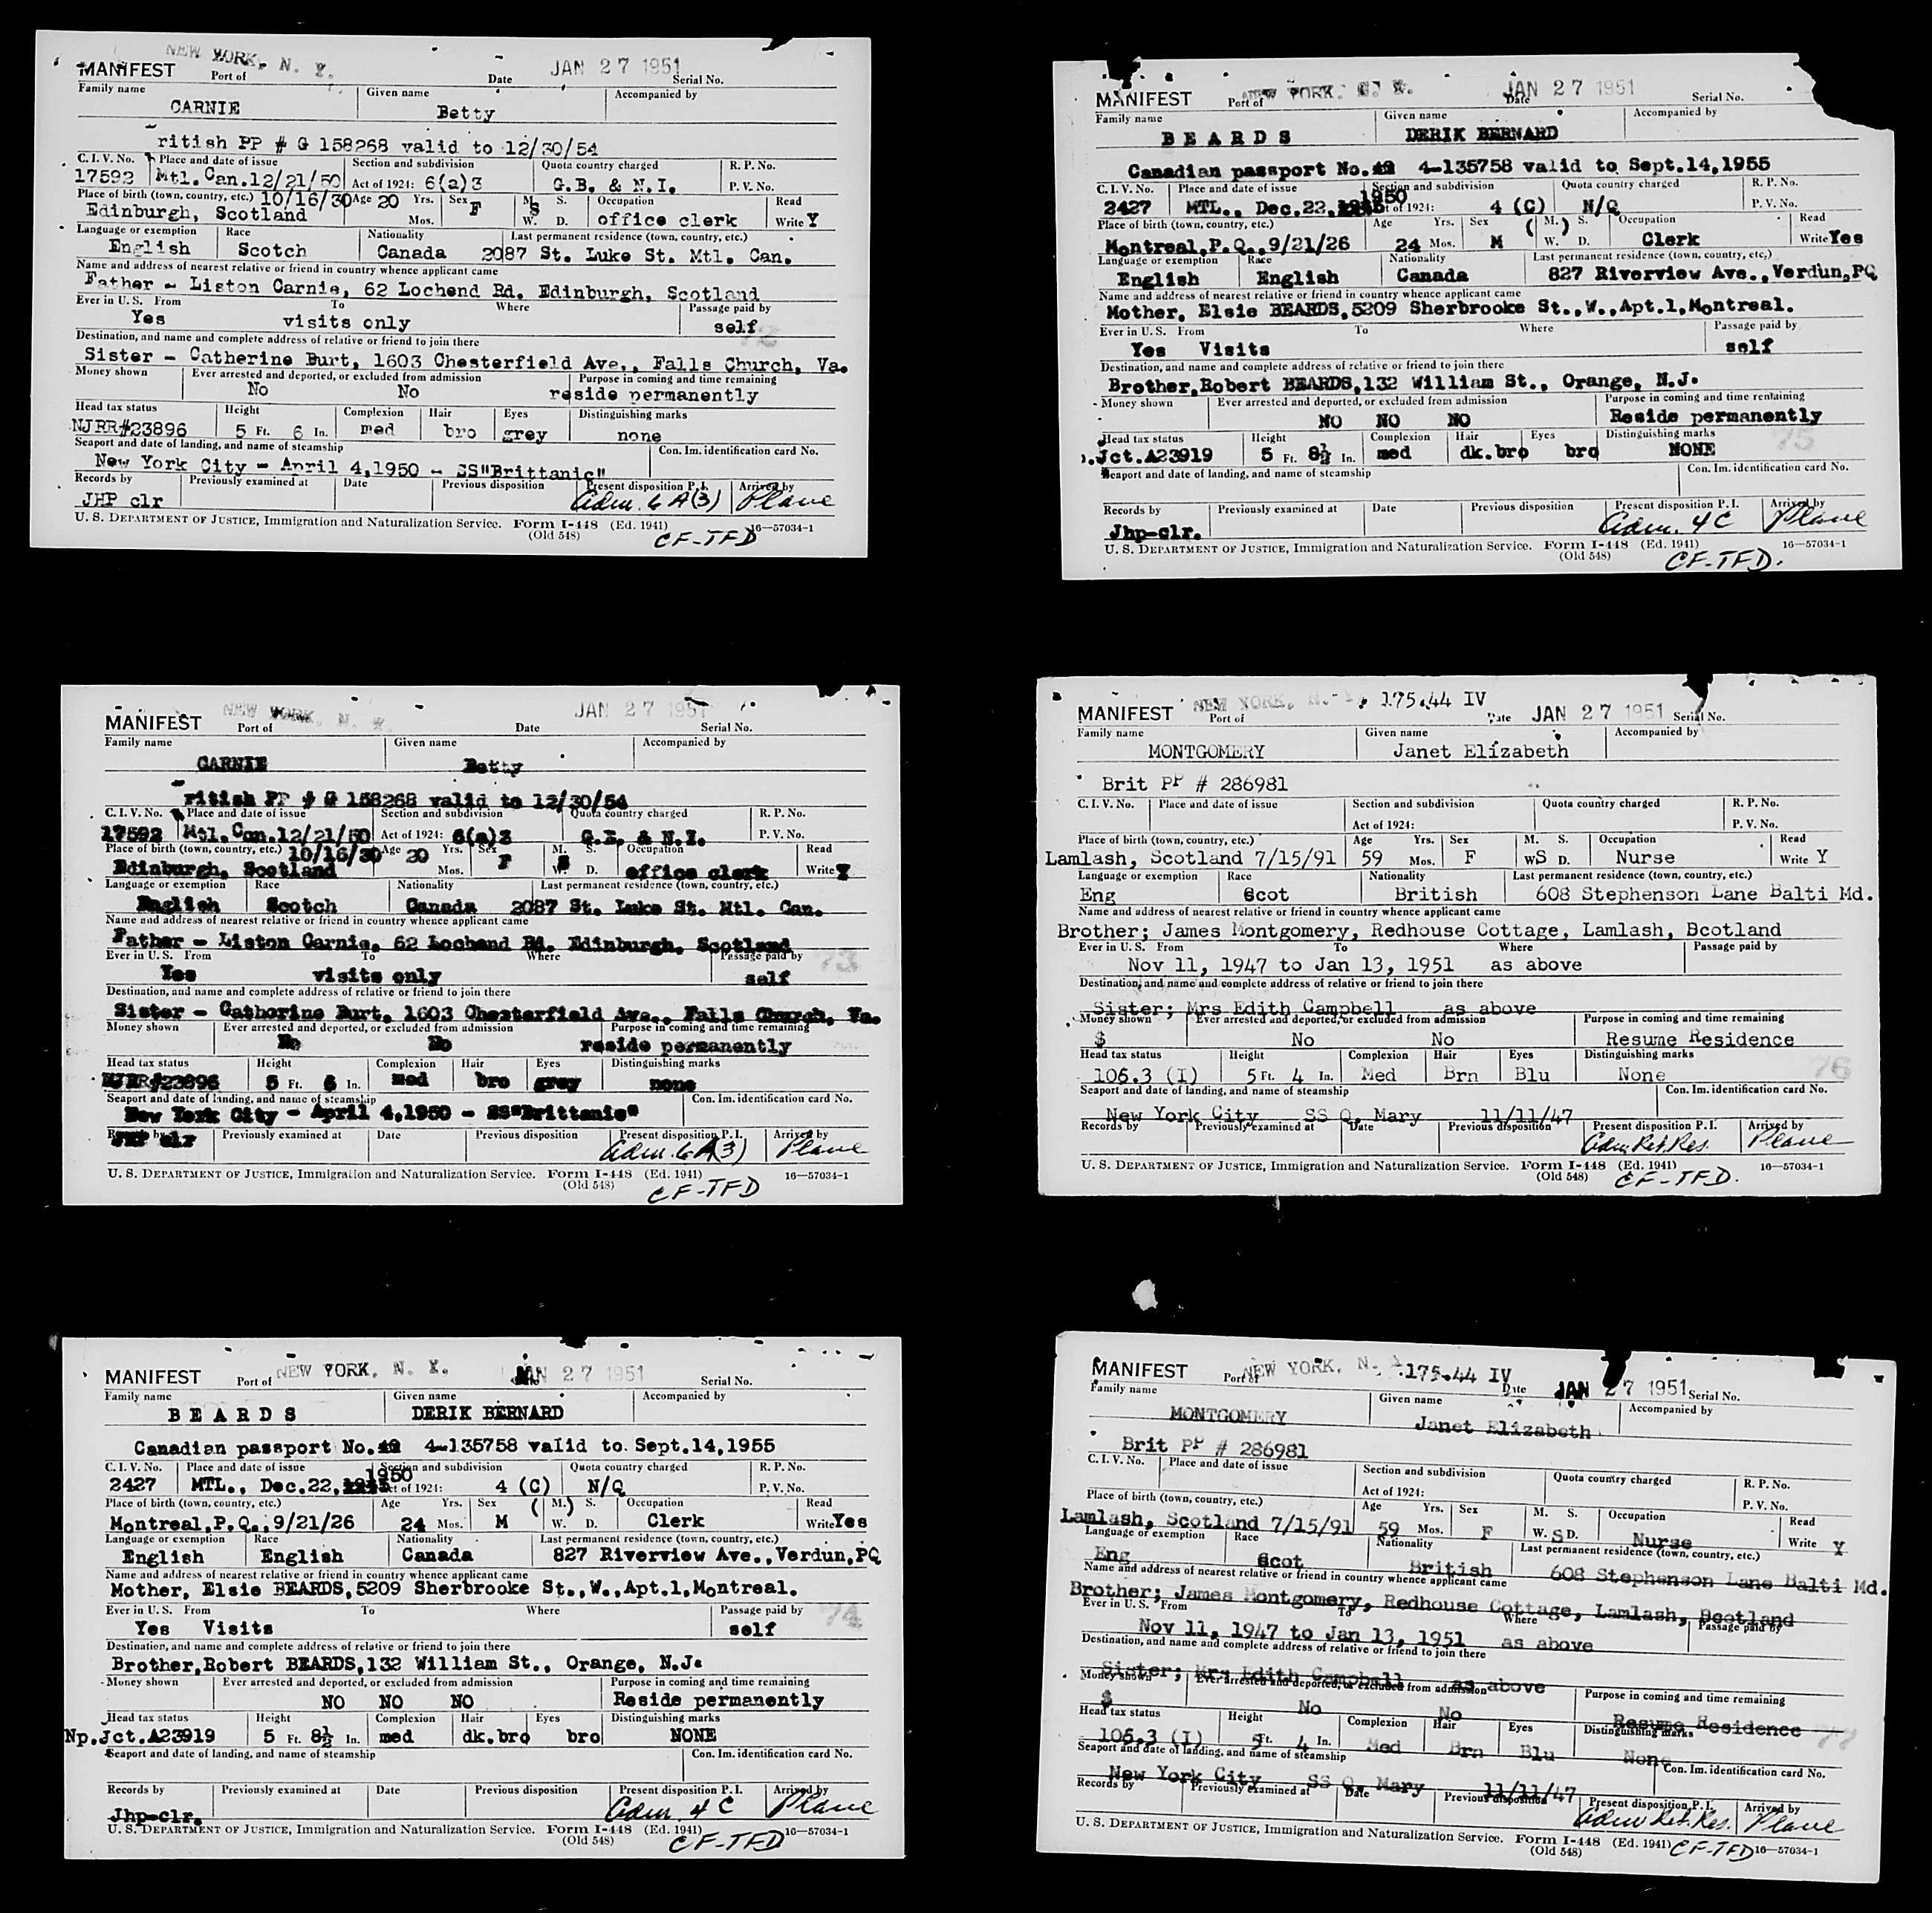 NEW YORK, N. Y. JAN 27 1951
MANIFEST Port of Date Serial No.
Family name Given name Accompanied by
CARNIE Betty
ritish PP # G 158268 valid to 12/30/54
C. I. V. No. Place and date of issue Section and subdivision Quota country charged R. P. No.
17592 Mtl. Can.12/21/50 Act of 1924: 6(a)3 G.B. & N.I. P. V. No.
Place of birth (town, country, etc.) 10/16/30 Age 20 Yrs. Sex F M. S. Occupation Read
Edinburgh, Scotland Mos. W. D. office clerk Write Y
Language or exemption Race Nationality Last permanent residence (town, country, etc.)
English Scotch Canada 2087 St. Luke St. Mtl. Can.
Name and address of nearest relative or friend in country whence applicant came
Father - Liston Carnie, 62 Lochend Rd. Edinburgh, Scotland
Ever in U. S. From To Where Passage paid by
Yes visits only self
72
Destination, and name and complete address of relative or friend to join there
Sister - Catherine Burt, 1603 Chesterfield Ave., Falls Church, Va.
Money shown Ever arrested and deported, or excluded from admission Purpose in coming and time remaining
No No reside permanently
Head tax status Height Complexion Hair Eyes Distinguishing marks
NJRR#23896 5 Ft. 6 In. med bro grey none
Seaport and date of landing, and name of steamship Con. Im. identification card No.
New York City - April 4,1950 - SS"Brittanic"
Records by Previously examined at Date Previous disposition Present disposition P. I. Arrived by
JHP clr Adm. 6 A(3) Plane
U. S. DEPARTMENT OF JUSTICE, Immigration and Naturalization Service. Form I-448 (Ed. 1941) 16—57034-1
(Old 548) CF-TFD
NEW YORK, N. Y. JAN 27 1951
MANIFEST Port of Date Serial No.
Family name Given name Accompanied by
BEARDS DERIK BERNARD
Canadian passport No. 4-135758 valid to Sept.14,1955
C. I. V. No. Place and date of issue Section and subdivision Quota country charged R. P. No.
1950
2427 MTL., Dec.22, Act of 1924: 4 (C) N/Q P. V. No.
Place of birth (town, country, etc.) Age Yrs. Sex (M.) S. Occupation Read
Montreal,P.Q.,9/21/26 24 Mos. M W. D. Clerk Write Yes
Language or exemption Race Nationality Last permanent residence (town, country, etc.)
English English Canada 827 Riverview Ave.,Verdun,PQ
Name and address of nearest relative or friend in country whence applicant came
Mother, Elsie BEARDS,5209 Sherbrooke St.,W.,Apt.1,Montreal.
Ever in U. S. From To Where Passage paid by
Yes Visits self
Destination, and name and complete address of relative or friend to join there
Brother,Robert BEARDS,132 William St., Orange, N.J.
Money shown Ever arrested and deported, or excluded from admission Purpose in coming and time remaining
NO NO NO Reside permanently
75
Head tax status Height Complexion Hair Eyes Distinguishing marks
.Jct.A23919 5 Ft. 8½ In. med dk.bro bro NONE
Seaport and date of landing, and name of steamship Con. Im. identification card No.
Records by Previously examined at Date Previous disposition Present disposition P. I. Arrived by
Jhp-clr. Adm. 4 C Plane
U. S. DEPARTMENT OF JUSTICE, Immigration and Naturalization Service. Form I-448 (Ed. 1941) 16—57034-1
(Old 548) CF-TFD.
NEW YORK, N. Y. JAN 27 1951
MANIFEST Port of Date Serial No.
Family name Given name Accompanied by
CARNIE Betty
ritish PP # G 158268 valid to 12/30/54
C. I. V. No. Place and date of issue Section and subdivision Quota country charged R. P. No.
17592 Mtl. Can.12/21/50 Act of 1924: 6(a)3 G.B. & N.I. P. V. No.
Place of birth (town, country, etc.) 10/16/30 Age 20 Yrs. Sex F M. S. Occupation Read
Edinburgh, Scotland Mos. W. D. office clerk Write Y
Language or exemption Race Nationality Last permanent residence (town, country, etc.)
English Scotch Canada 2087 St. Luke St. Mtl. Can.
Name and address of nearest relative or friend in country whence applicant came
Father - Liston Carnie, 62 Lochend Rd. Edinburgh, Scotland
Ever in U. S. From To Where Passage paid by 73
Yes visits only self
Destination, and name and complete address of relative or friend to join there
Sister - Catherine Burt, 1603 Chesterfield Ave., Falls Church, Va.
Money shown Ever arrested and deported, or excluded from admission Purpose in coming and time remaining
No No reside permanently
Head tax status Height Complexion Hair Eyes Distinguishing marks
NJRR#23896 5 Ft. 6 In. med bro grey none
Seaport and date of landing, and name of steamship Con. Im. identification card No.
New York City - April 4,1950 - SS"Brittanic"
Records by Previously examined at Date Previous disposition Present disposition P. I. Arrived by
JHP clr Adm. 6 A(3) Plane
U. S. DEPARTMENT OF JUSTICE, Immigration and Naturalization Service. Form I-448 (Ed. 1941) 16—57034-1
(Old 548) CF-TFD
NEW YORK, N. Y. 175.44 IV
MANIFEST Port of Date JAN 27 1951 Serial No.
Family name Given name Accompanied by
MONTGOMERY Janet Elizabeth
Brit PP # 286981
C. I. V. No. Place and date of issue Section and subdivision Quota country charged R. P. No.
Act of 1924: P. V. No.
Place of birth (town, country, etc.) Age Yrs. Sex M. S. Occupation Read
Lamlash, Scotland 7/15/91 59 Mos. F WS D. Nurse Write Y
Language or exemption Race Nationality Last permanent residence (town, country, etc.)
Eng Scot British 608 Stephenson Lane Balti Md.
Name and address of nearest relative or friend in country whence applicant came
Brother; James Montgomery, Redhouse Cottage, Lamlash, Scotland
Ever in U. S. From To Where Passage paid by
Nov 11, 1947 to Jan 13, 1951 as above
Destination, and name and complete address of relative or friend to join there
Sister; Mrs Edith Campbell as above
Money shown Ever arrested and deported, or excluded from admission Purpose in coming and time remaining
$ No No Resume Residence
Head tax status Height Complexion Hair Eyes Distinguishing marks 76
106.3 (I) 5 Ft. 4 In. Med Brn Blu None
Seaport and date of landing, and name of steamship Con. Im. identification card No.
New York City SS Q. Mary 11/11/47
Records by Previously examined at Date Previous disposition Present disposition P. I. Arrived by
Adm Ret. Res. Plane
U. S. DEPARTMENT OF JUSTICE, Immigration and Naturalization Service. Form I-448 (Ed. 1941) 16—57034-1
(Old 548) CF-TFD.
NEW YORK, N. Y. JAN 27 1951
MANIFEST Port of Serial No.
Family name Given name Accompanied by
BEARDS DERIK BERNARD
Canadian passport No. 4-135758 valid to Sept.14,1955
C. I. V. No. Place and date of issue Section and subdivision Quota country charged R. P. No.
1950
2427 MTL., Dec.22, Act of 1924: 4 (C) N/Q P. V. No.
Place of birth (town, country, etc.) Age Yrs. Sex (M.) S. Occupation Read
Montreal,P.Q.,9/21/26 24 Mos. M W. D. Clerk Write Yes
Language or exemption Race Nationality Last permanent residence (town, country, etc.)
English English Canada 827 Riverview Ave.,Verdun,PQ
Name and address of nearest relative or friend in country whence applicant came
Mother, Elsie BEARDS,5209 Sherbrooke St.,W.,Apt.1,Montreal.
Ever in U. S. From To Where Passage paid by 74
Yes Visits self
Destination, and name and complete address of relative or friend to join there
Brother,Robert BEARDS,132 William St., Orange, N.J.
Money shown Ever arrested and deported, or excluded from admission Purpose in coming and time remaining
NO NO NO Reside permanently
Head tax status Height Complexion Hair Eyes Distinguishing marks
Np.Jct.A23919 5 Ft. 8½ In. med dk.bro bro NONE
Seaport and date of landing, and name of steamship Con. Im. identification card No.
Records by Previously examined at Date Previous disposition Present disposition P. I. Arrived by
Jhp-clr. Adm 4 C Plane
U. S. DEPARTMENT OF JUSTICE, Immigration and Naturalization Service. Form I-448 (Ed. 1941) 16—57034-1
(Old 548) CF-TFD
NEW YORK, N. 175.44 IV
MANIFEST Port of Date JAN 27 1951 Serial No.
Family name Given name Accompanied by
MONTGOMERY Janet Elizabeth
Brit PP # 286981
C. I. V. No. Place and date of issue Section and subdivision Quota country charged R. P. No.
Act of 1924: P. V. No.
Place of birth (town, country, etc.) Age Yrs. Sex M. S. Occupation Read
Lamlash, Scotland 7/15/91 59 Mos. F W. S D. Nurse Write Y
Language or exemption Race Nationality Last permanent residence (town, country, etc.)
Eng Scot British 608 Stephenson Lane Balti Md.
Name and address of nearest relative or friend in country whence applicant came
Brother; James Montgomery, Redhouse Cottage, Lamlash, Scotland
Ever in U. S. From To Where Passage paid by
Nov 11, 1947 to Jan 13, 1951 as above
Destination, and name and complete address of relative or friend to join there
Sister; Mrs Edith Campbell as above
Money shown Ever arrested and deported, or excluded from admission Purpose in coming and time remaining
$ No No Resume Residence
Head tax status Height Complexion Hair Eyes Distinguishing marks 77
106.3 (I) 5 Ft. 4 In. Med Brn Blu None
Seaport and date of landing, and name of steamship Con. Im. identification card No.
New York City SS Q. Mary 11/11/47
Records by Previously examined at Date Previous disposition Present disposition P. I. Arrived by
Adm Ret. Res. Plane
U. S. DEPARTMENT OF JUSTICE, Immigration and Naturalization Service. Form I-448 (Ed. 1941) 16—57034-1
(Old 548) CF-TFD